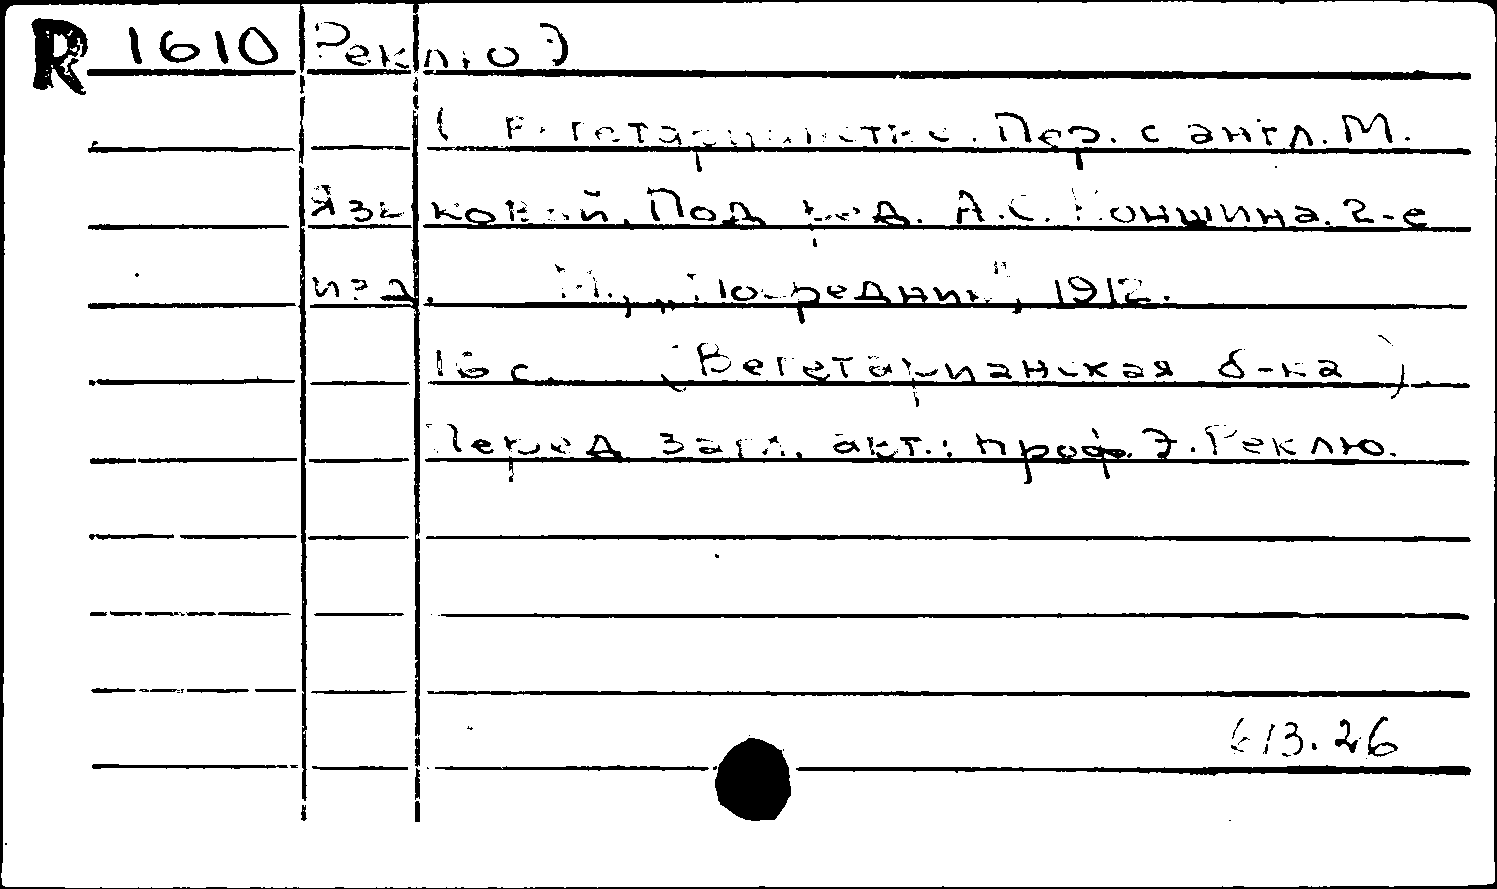 R 1610 Реклю Э
О вегетарианстве. Пер. с англ. М.
Языковой. Под ред. А.С. Коншина. 2-е
изд. М., „Посредник", 1912.
16 с. (Вегетарианская б-ка).
Перед загл. авт.: проф. Э. Реклю.
613.26